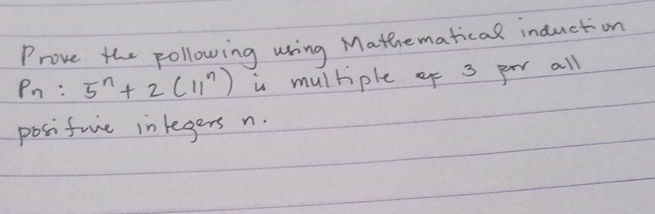 Prove the following using Mathematical induction
Pn : 5ⁿ + 2 (11ⁿ) is multiple of 3 for all
positive integers n.